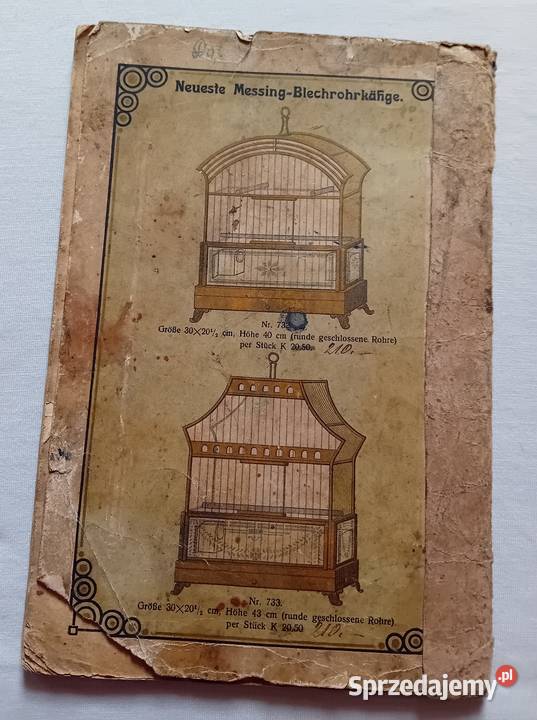 Neueste Messing-Blechrohrkäfige.
Nr. 73
Größe 30×20½ cm, Höhe 40 cm (runde geschlossene Rohre)
per Stück K 20.50. 210.–
Nr. 733.
Größe 30×20½ cm, Höhe 43 cm (runde geschlossene Rohre)
per Stück K 20.50 210.–
Sprzedajemy.pl